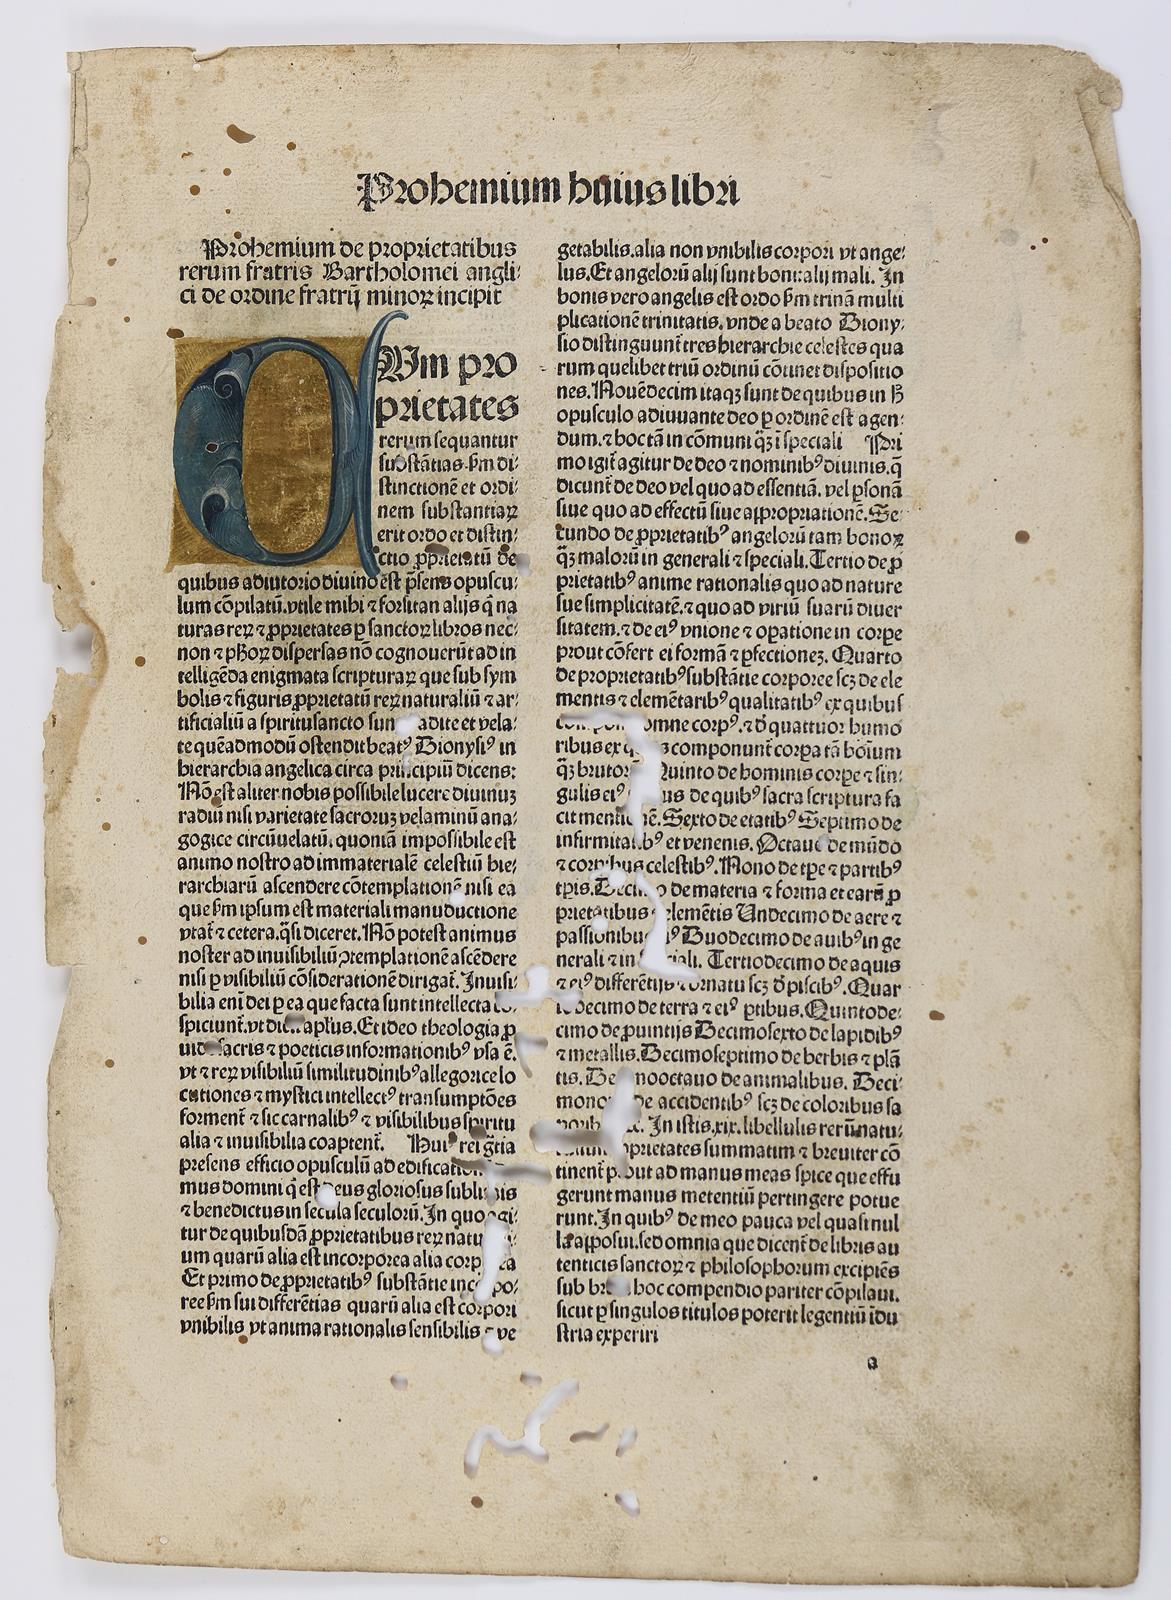 Prohemium huius libri
Prohemium de proprietatibus
rerum fratris Bartholomei angli-
ci de ordine fratrū minoꝝ incipit
CUm pro
prietates
rerum sequantur
substātias. ẜm di-
stinctionē et ordi-
nem substantiaꝝ
erit ordo et distin-
ctio ꝓprietatū de
quibus adiutorio diuino est p̄sens opuscu-
lum cōpilatū. vtile mihi ⁊ forsitan alijs q̄ na
turas reꝝ ⁊ ꝓprietates ꝑ sanctoꝝ libros nec-
non ⁊ pħoꝝ dispersas nō cognouerūt ad in
telligēda enigmata scripturaꝝ que sub sym
bolis ⁊ figuris ꝓprietatū reꝝ naturaliū ⁊ ar-
tificialiū a spiritusancto sun adite et vela-
te quēadmodū ostendit beatꝰ Dionysiꝰ in
hierarchia angelica circa principiū dicens:
Nō est aliter nobis possibile lucere diuinuꝫ
radiū nisi varietate sacroruꝫ velaminū ana-
gogice circūuelatū. quoniā impossibile est
animo nostro ad immaterialē celestiū hie-
rarchiarū ascendere cōtemplationē nisi ea
que ẜm ipsum est materiali manuductione
vtat᷑ ⁊ cetera. q̄si diceret. Nō potest animus
noster ad inuisibiliū ꝯtemplationē ascēdere
nisi ꝑ visibiliū cōsiderationē dirigat᷑. Inuisi-
bilia enī dei ꝑ ea que facta sunt intellecta
spiciunt᷑. vt aplūs. Et ideo theologia ꝓ
sacris ⁊ poeticis informationibꝰ vsa ē.
vt ⁊ reꝝ visibiliū similitudinibꝰ allegorice lo
cutiones ⁊ mystici intellectꝰ transumptōes
forment᷑ ⁊ sic carnalibꝰ ⁊ visibilibus spiritu
alia ⁊ inuisibilia coaptent᷑. Huiꝰ rei gr̄tia
presens efficio opusculū ad edification
mus domini q̄ est deus gloriosus sublimis
⁊ benedictus in secula seculorū. In quo agi-
tur de quibusdā ꝓprietatibus reꝝ natu
um quarū alia est incorporea alia corp ea
Et primo de ꝓprietatibꝰ substātie incorpo-
ree ẜm sui differētias quarū alia est corpori
vnibilis vt anima rationalis sensibilis ⁊ ve
getabilis. alia non vnibilis corpori vt ange-
lus. Et angelorū alij sunt boni: alij mali. In
bonis vero angelis est ordo ẜm trinā multi
plicationē trinitatis. vnde a beato Diony-
sio distinguunt᷑ tres hierarchie celestes qua
rum quelibet triū ordinū cōtinet dispositio
nes. Nouēdecim itaqꝫ sunt de quibus in h̄
opusculo adiuuante deo ꝑ ordinē est agen-
dum. ⁊ hoc tā in cōmuni q̄ꝫ ī speciali Pri
mo igit᷑ agitur de deo ⁊ nominibꝰ diuinis. q̄
dicunt᷑ de deo vel quo ad essentiā. vel ꝑsonā
siue quo ad effectū siue appropriationē. Se-
cundo de ꝓprietatibꝰ angelorū tam bonoꝝ
q̄ꝫ malorū in generali ⁊ speciali. Tertio de ꝓ
prietatibꝰ anime rationalis quo ad nature
sue simplicitatē. ⁊ quo ad viriū suarū diuer
sitatem. ⁊ de eiꝰ vnione ⁊ oꝑatione in corꝑe
prout cōfert ei formā ⁊ ꝑfectioneꝫ. Quarto
de proprietatibꝰ substātie corporee scꝫ de ele
mentis ⁊ elemētaribꝰ qualitatibꝰ ex quibus
omne corpꝰ. ⁊ d̄ quattuor humo
ribus ex q s componunt᷑ corꝑa tā hoīum
q̄ꝫ brutoꝝ Quinto de hominis corꝑe ⁊ sin-
gulis eiꝰ us de quibꝰ sacra scriptura fa
cit mentionē. Sexto de etatibꝰ Septimo de
infirmitatibꝰ et venenis. Octauo de mūdo
⁊ corporibus celestibꝰ. Nono de tꝑe ⁊ partibꝰ
tꝑis. Decimo de materia ⁊ forma et earū ꝓ
prietatibus elemētis Undecimo de aere ⁊
passionibus eiꝰ Duodecimo de auibꝰ in ge
nerali ⁊ in speciali. Tertiodecimo de aquis
⁊ eiꝰ differētijs ⁊ ornatu scꝫ d̄ piscibꝰ. Quar
todecimo de terra ⁊ eiꝰ ꝑtibus. Quintode-
cimo de ꝓuintijs Decimosexto de lapidibꝰ
⁊ metallis. Decimoseptimo de herbis ⁊ plā
tis. De mooctauo de animalibus. Deci-
mono de accidentibꝰ scꝫ de coloribus sa
poribꝰ ⁊c. In istis .xix. libellulis rerū natu-
proprietates summatim ⁊ breuiter cō
tinent᷑ prout ad manus meas spice que effu
gerunt manus metentiū pertingere potue
runt. In quibꝰ de meo pauca vel quasi nul
la apposui. sed omnia que dicent᷑ de libris au
tenticis sanctoꝝ ⁊ philosophorum excipiēs
sub breui hoc compendio pariter cōpilaui.
sicut ꝑ singulos titulos poterit legentiū īdu
stria experiri
a